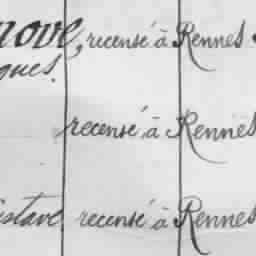 nove, recensé à Rennes
ques.
recensé à Rennes
ustave recensé à Rennes